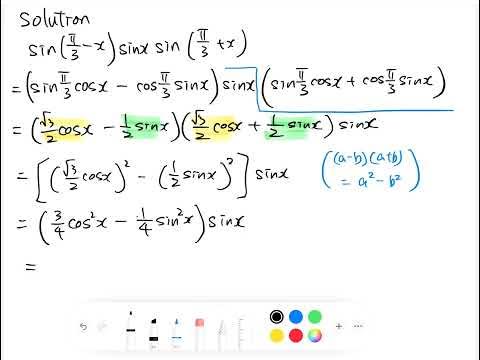 Solution
sin(π/3 - x) sinx sin(π/3 + x)
= (sin π/3 cosx - cos π/3 sinx) sinx (sin π/3 cosx + cos π/3 sinx)
= (√3/2 cosx - 1/2 sinx)(√3/2 cosx + 1/2 sinx) sinx
= [(√3/2 cosx)² - (1/2 sinx)²] sinx
((a-b)(a+b)
= a² - b²)
= (3/4 cos²x - 1/4 sin²x) sinx
=